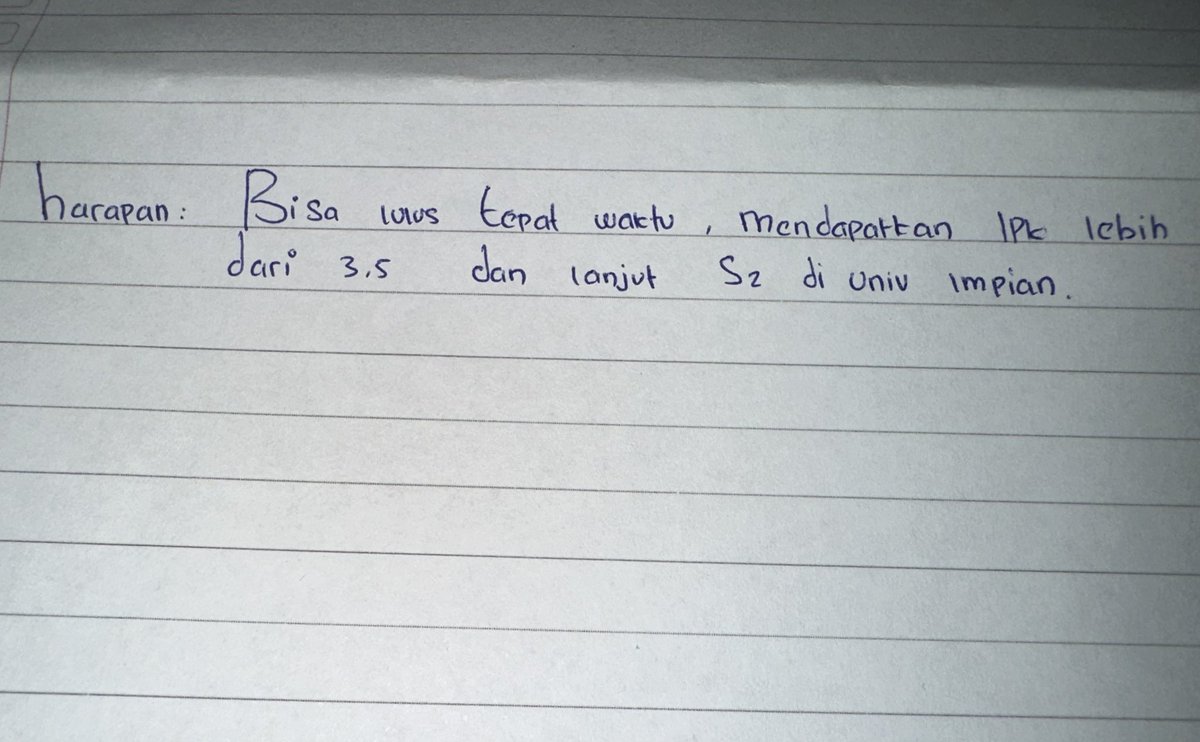 harapan: Bisa lulus tepat waktu, mendapatkan IPK lebih
dari 3.5 dan lanjut S2 di univ impian.